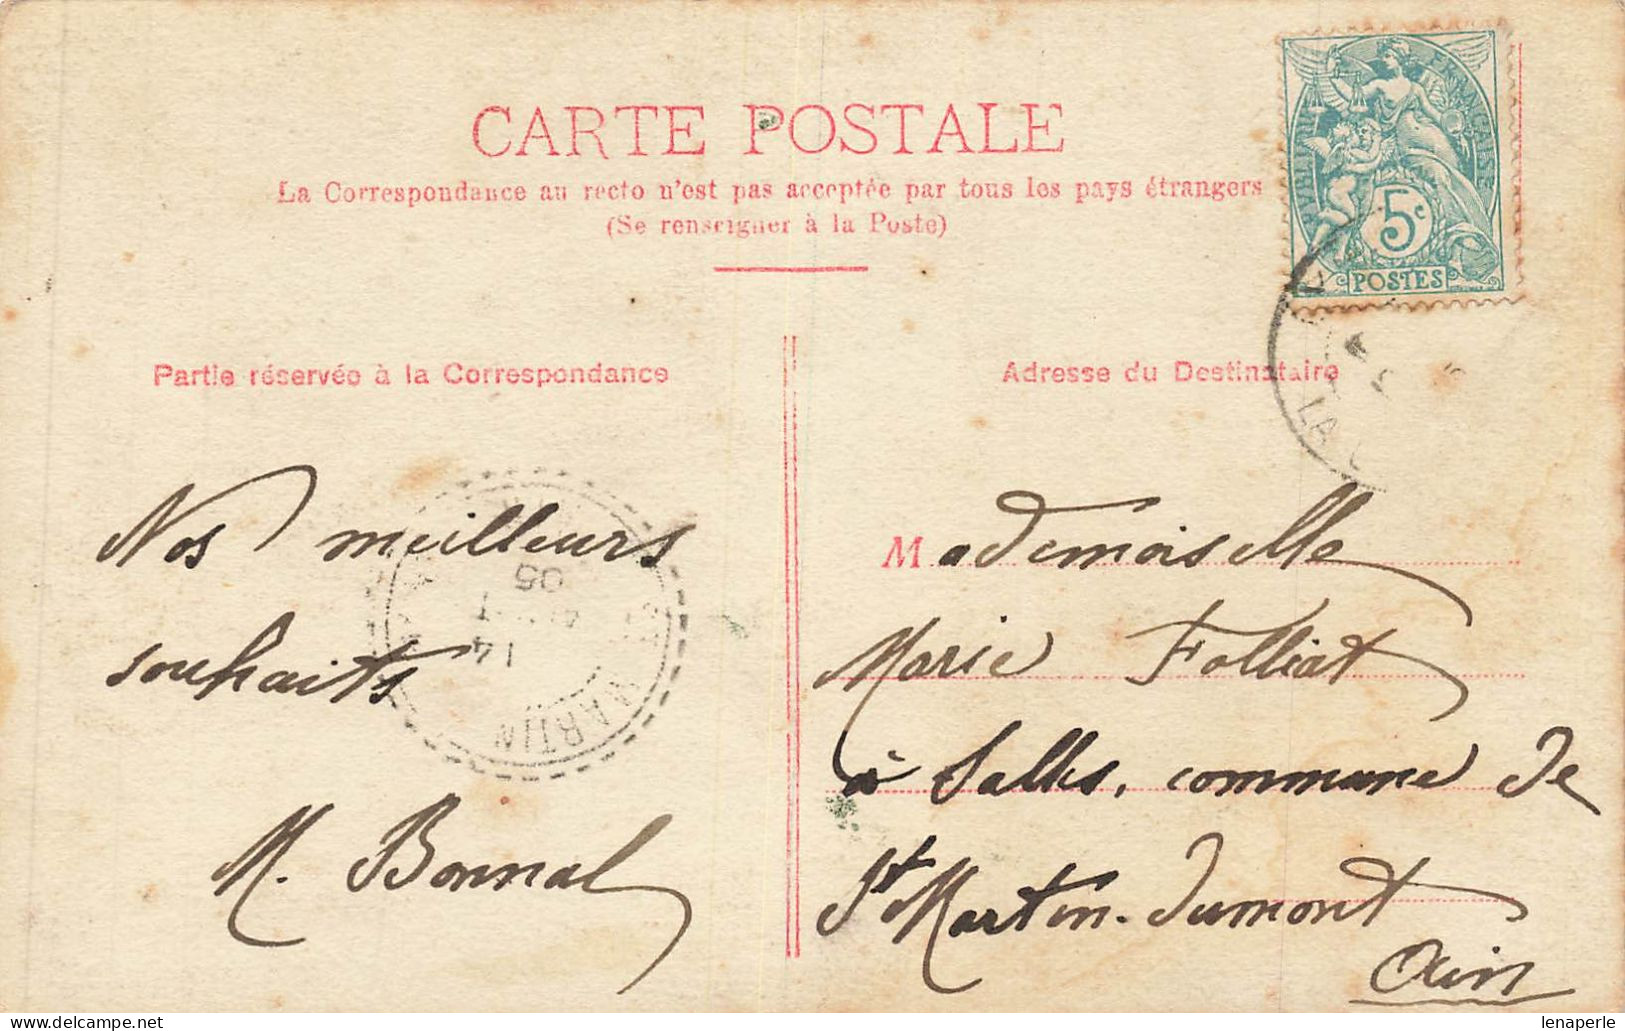 CARTE POSTALE
La Correspondance au recto n'est pas acceptée par tous les pays étrangers
(Se renseigner à la Poste)
RÉPUBLIQUE FRANÇAISE
5c
POSTES
Partie réservée à la Correspondance
Adresse du Destinataire
LA
Nos meilleurs
souhaits
M. Bonnal
MARTIN
14
05
Mademoiselle
Marie Folliat
à Salles, commune de
St Martin-Dumont
Ain
lenaperle